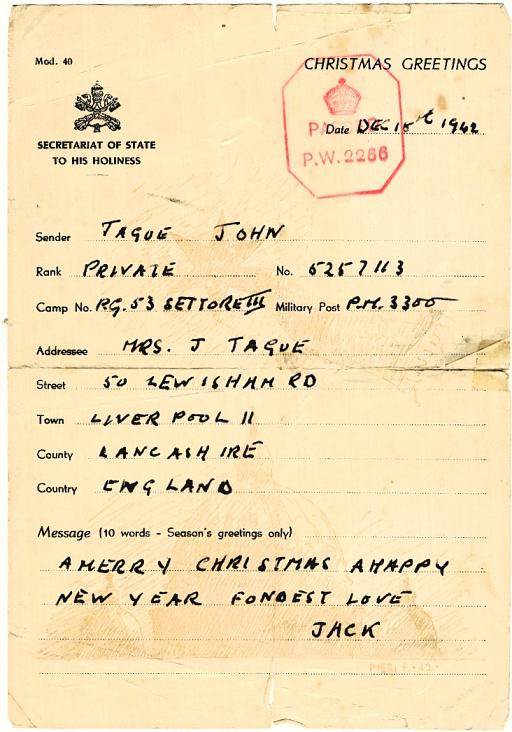 Mod. 40
CHRISTMAS GREETINGS
SECRETARIAT OF STATE
TO HIS HOLINESS
Date DEC 15t 1942
P.W. 2266
Sender TAGUE JOHN
Rank PRIVATE No. 5257113
Camp No. P.G. 53 SETTORE III Military Post P.M. 3300
Addressee MRS. J TAGUE
Street 50 LEWISHAM RD
Town LIVERPOOL 11
County LANCASHIRE
Country ENGLAND
Message (10 words - Season's greetings only)
A MERRY CHRISTMAS A HAPPY
NEW YEAR FONDEST LOVE
JACK